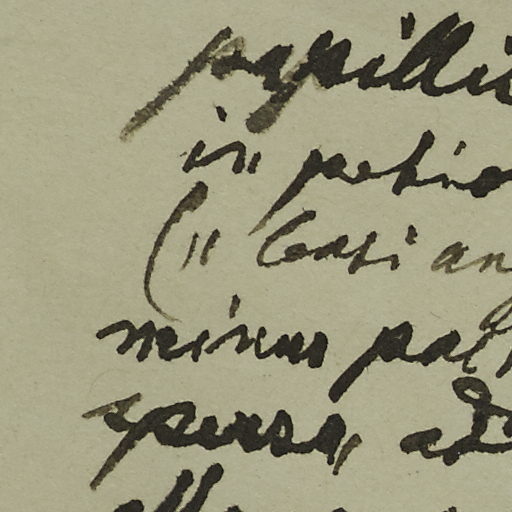 papilli
in petio
(" basi an
minus pal
spersa, ad